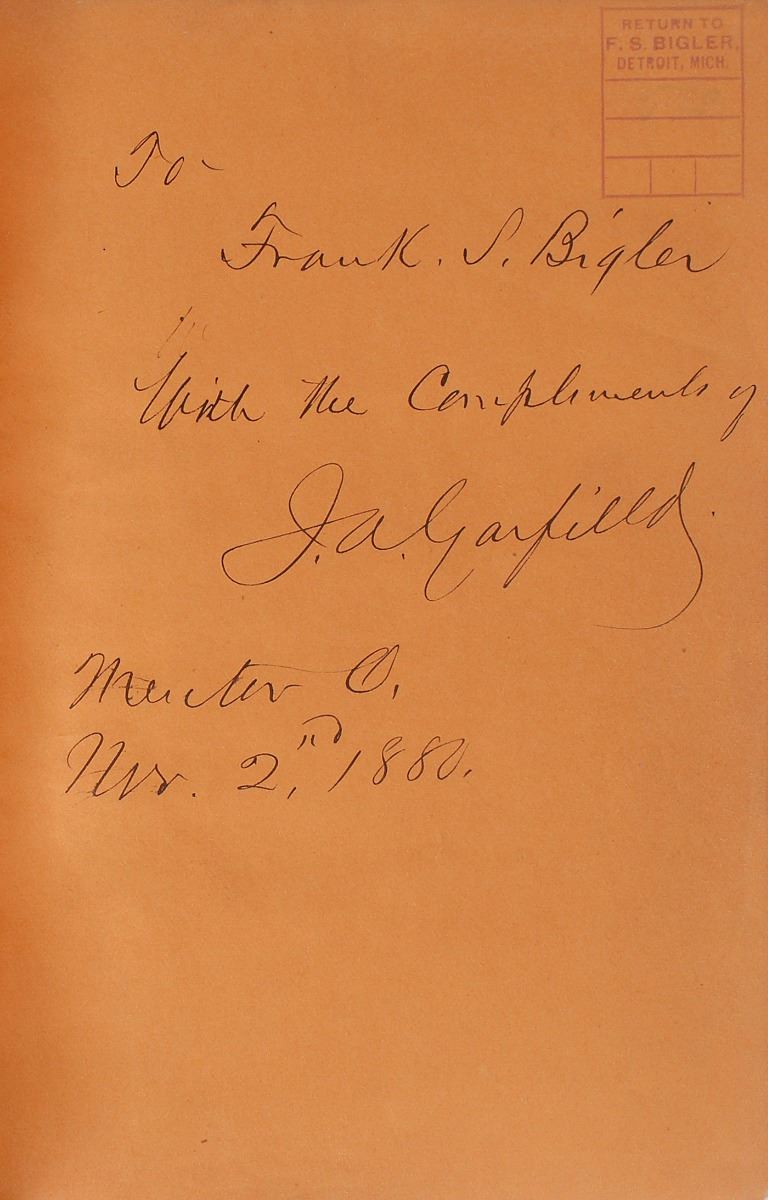 RETURN TO
F. S. BIGLER,
DETROIT, MICH.
To
Frank. S. Bigler
With the Compliments of
J. A. Garfield.
Mentor O.
Nov. 2,nd 1880.